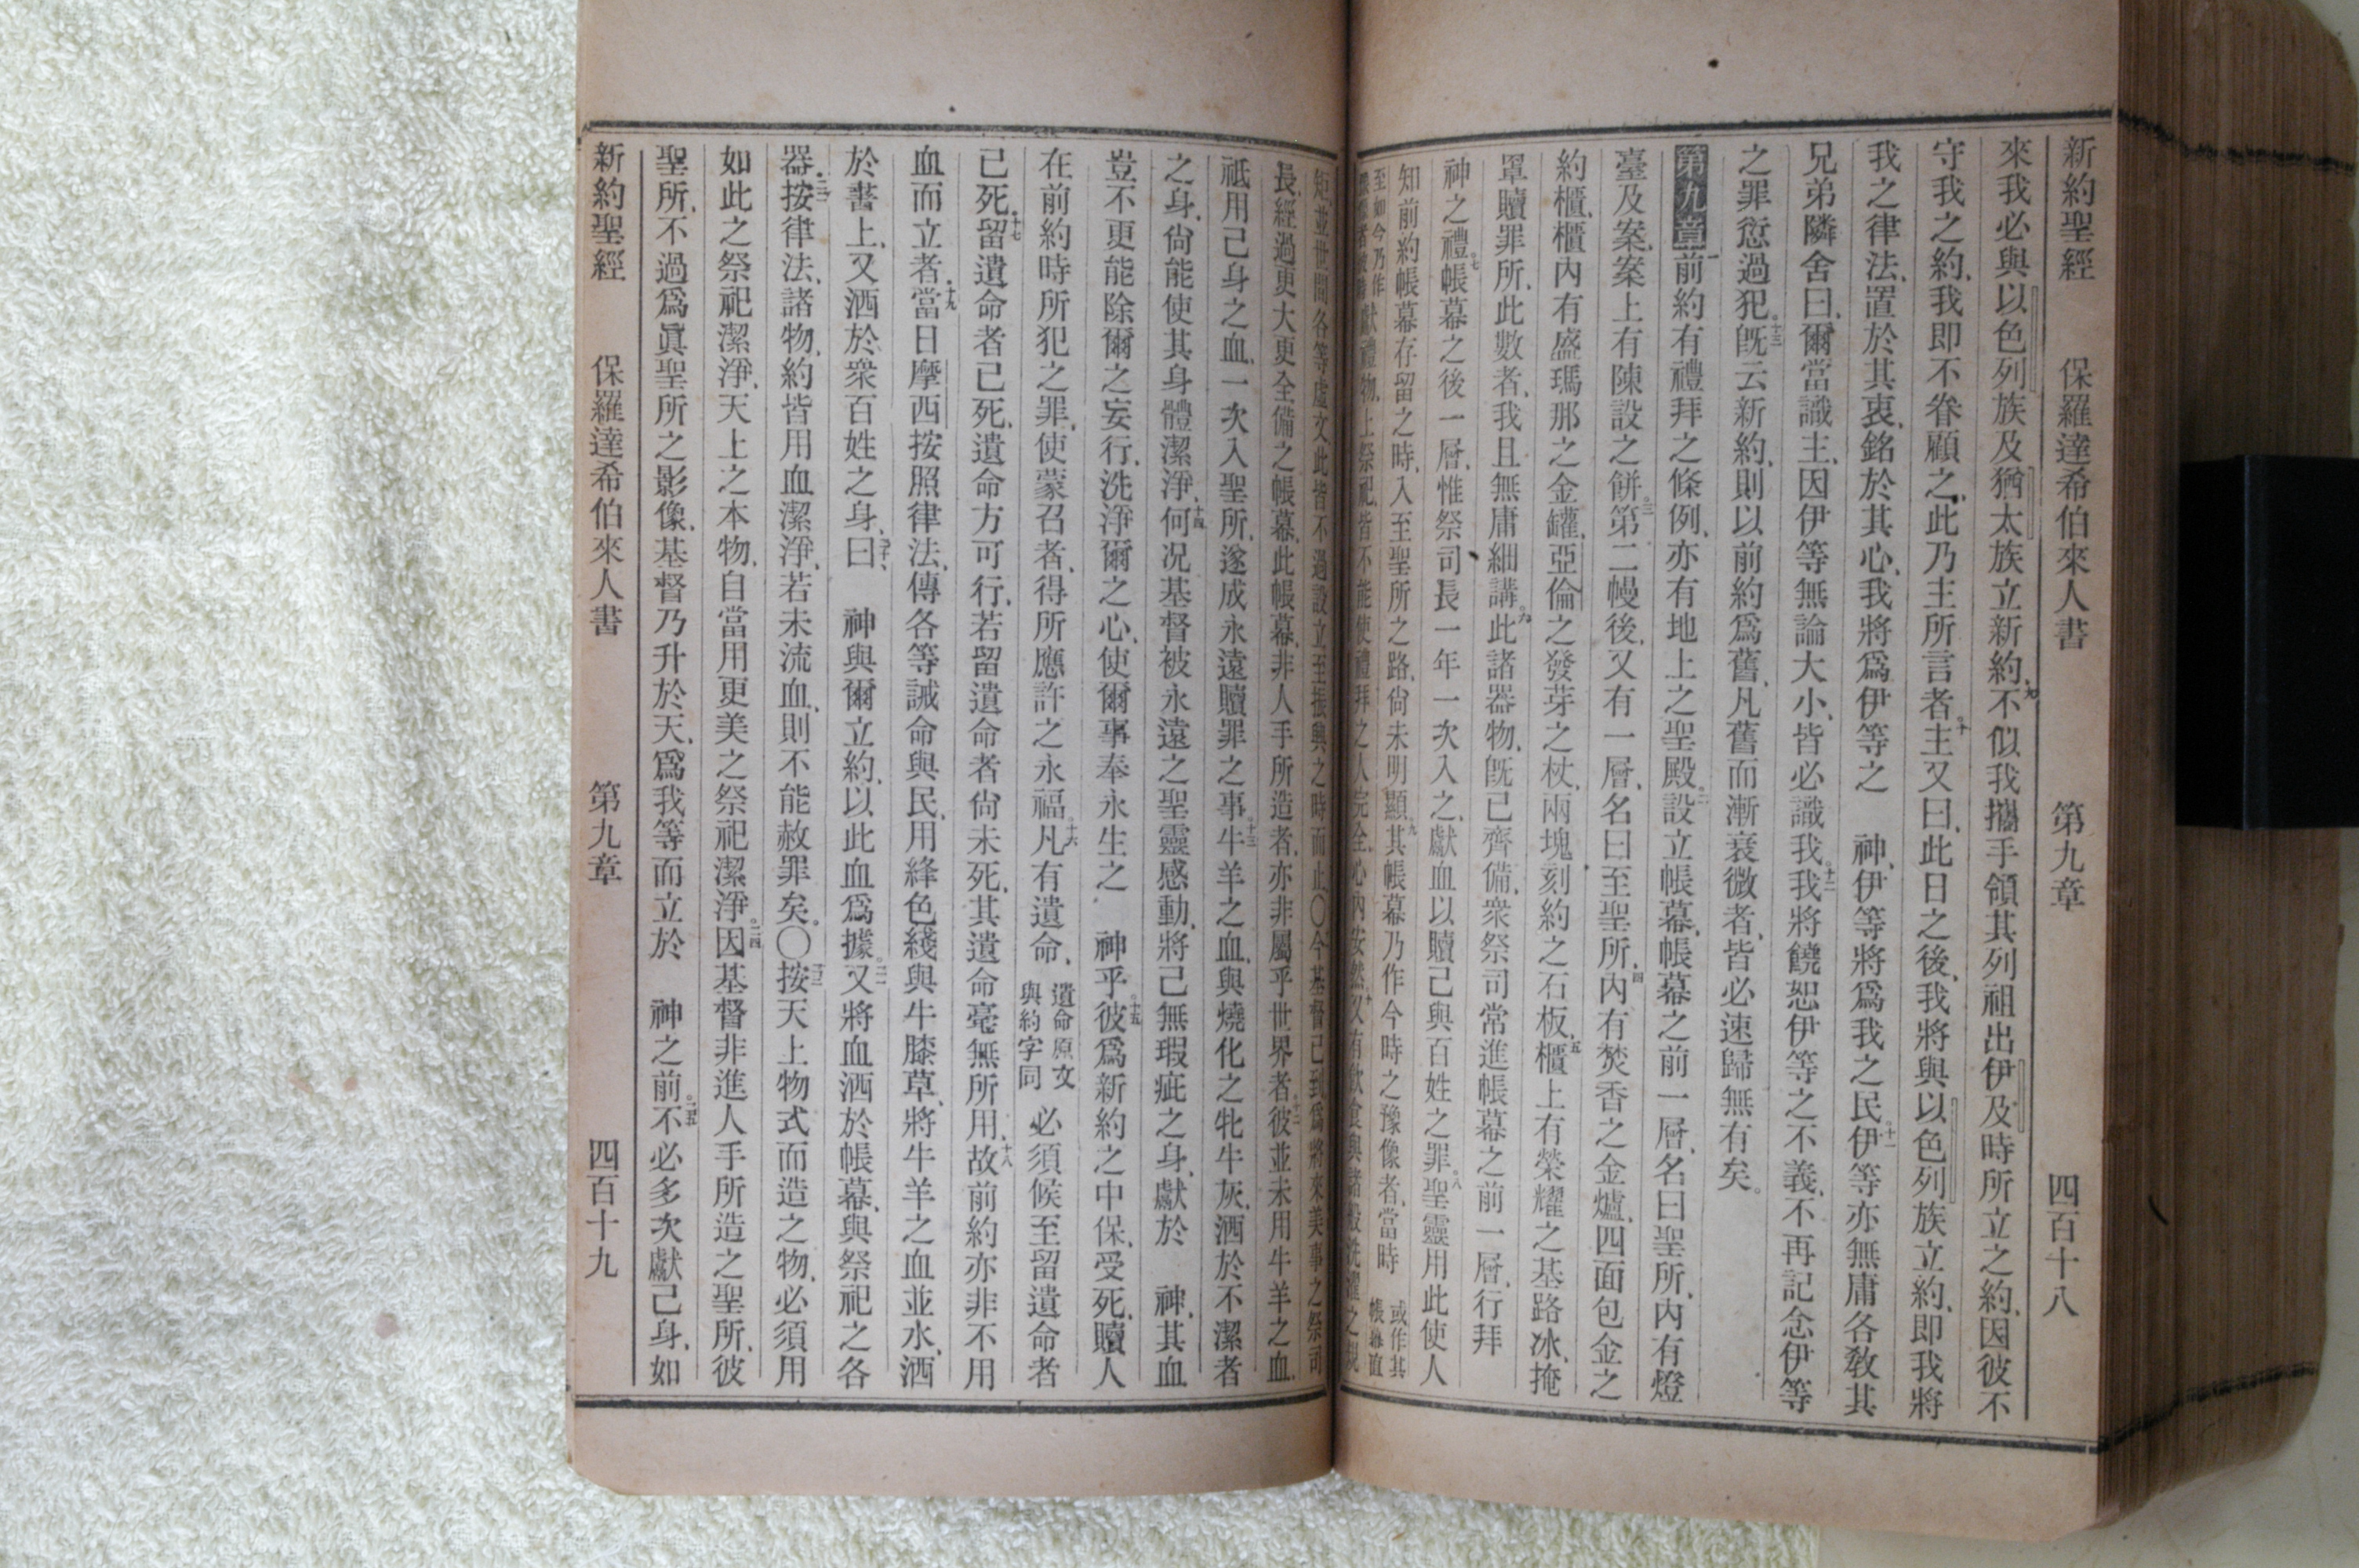 新約聖經 保羅達希伯來人書 第九章 四百十八
來我必與以色列族及猶太族立新約九不似我攜手領其列祖出伊及時所立之約因彼不
守我之約我即不眷顧之此乃主所言者十主又曰此日之後我將與以色列族立約即我將
我之律法置於其衷銘於其心我將爲伊等之 神伊等將爲我之民十一伊等亦無庸各敎其
兄弟隣舍曰爾當識主因伊等無論大小皆必識我十二我將饒恕伊等之不義不再記念伊等
之罪愆過犯十三既云新約則以前約爲舊凡舊而漸衰微者皆必速歸無有矣
第九章一前約有禮拜之條例亦有地上之聖殿二設立帳幕帳幕之前一層名曰聖所內有燈
臺及案案上有陳設之餅三第二幔後又有一層名曰至聖所四內有焚香之金爐四面包金之
約櫃櫃內有盛瑪那之金罐亞倫之發芽之杖兩塊刻約之石板五櫃上有榮耀之基路冰掩
罩贖罪所此數者我且無庸細講六此諸器物既已齊備衆祭司常進帳幕之前一層行拜
神之禮七帳幕之後一層惟祭司長一年一次入之獻血以贖己與百姓之罪八聖靈用此使人
知前約帳幕存留之時入至聖所之路尙未明顯九其帳幕乃作今時之豫像者當時 或作其帳幕直
至如今乃作 獻禮物上祭祀皆不能使禮拜之人完全心內安然十又有飲食與諸般洗濯之
並世間各等虛文此皆不過設立至振興之時而止〇今基督已到爲將來美事之祭司
長經過更大更全備之帳幕此帳幕非人手所造者亦非屬乎世界者十二彼並未用牛羊之血
祗用己身之血一次入聖所遂成永遠贖罪之事十三牛羊之血與燒化之牝牛灰洒於不潔者
之身尙能使其身體潔淨十四何况基督被永遠之聖靈感動將己無瑕疵之身獻於 神其血
豈不更能除爾之妄行洗淨爾之心使爾事奉永生之 神乎十五彼爲新約之中保受死贖人
在前約時所犯之罪使蒙召者得所應許之永福十六凡有遺命 遺命原文與約字同 必須候至留遺命者
已死十七留遺命者已死遺命方可行若留遺命者尙未死其遺命毫無所用十八故前約亦非不用
血而立者十九當日摩西按照律法傳各等誡命與民用絳色綫與牛膝草將牛羊之血並水洒
於書上又洒於衆百姓之身二十曰 神與爾立約以此血爲據二一又將血洒於帳幕與祭祀之各
器二二按律法諸物約皆用血潔淨若未流血則不能赦罪矣〇二三按天上物式而造之物必須用
如此之祭祀潔淨天上之本物自當用更美之祭祀潔淨二四因基督非進人手所造之聖所彼
聖所不過爲眞聖所之影像基督乃升於天爲我等而立於 神之前二五不必多次獻己身如
新約聖經 保羅達希伯來人書 第九章 四百十九